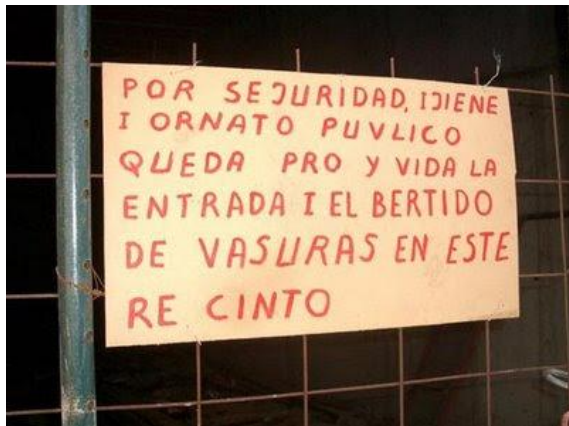 POR SEJURIDAD, IJIENE
I ORNATO PUVLICO
QUEDA PRO Y VIDA LA
ENTRADA I EL BERTIDO
DE VASURAS EN ESTE
RE CINTO